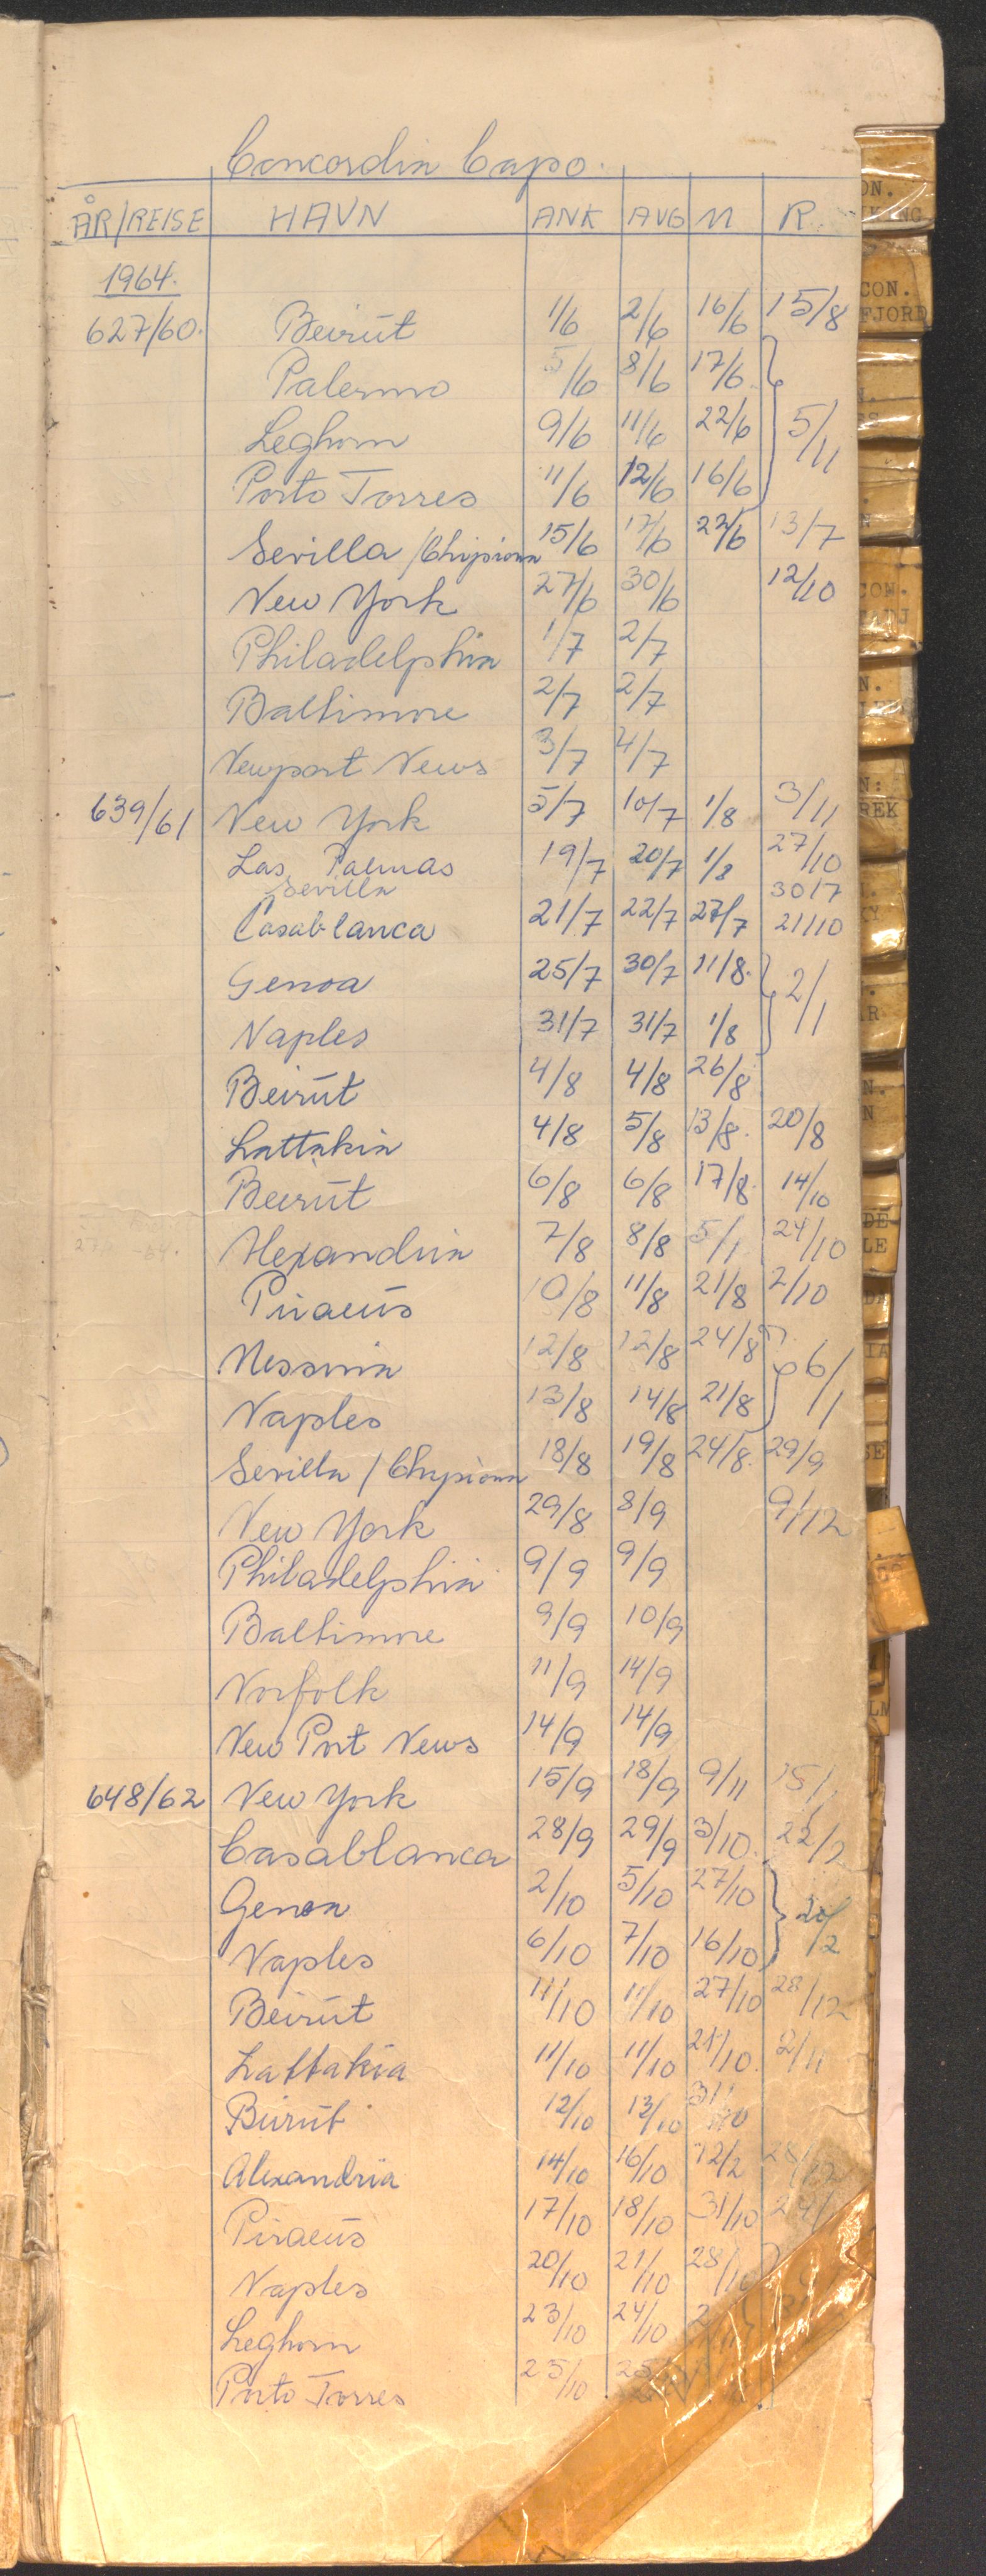 Concordia Capo.
ÅR/REISE HAVN ANK AVG M R
1964.
627/60. Beirut 1/6 2/6 16/6 15/8
Palermo 5/6 8/6 17/6
Leghorn 9/6 11/6 22/6 5/11
Porto Torres 11/6 12/6 16/6
Sevilla /Chipiona 15/6 17/6 22/6 13/7
New York 27/6 30/6 12/10
Philadelphia 1/7 2/7
Baltimore 2/7 2/7
Newport News 3/7 4/7
639/61 New York 5/7 10/7 1/8 3/11
Las Palmas 19/7 20/7 1/8 27/10
Sevilla 30/7
Casablanca 21/7 22/7 27/7 21/10
Genoa 25/7 30/7 11/8. 2/1
Naples 31/7 31/7 1/8
Beirut 4/8 4/8 26/8
Lattakia 4/8 5/8 13/8. 20/8
Beirut 6/8 6/8 17/8. 14/10
Alexandria 7/8 8/8 5/1 24/10
Piraeus 10/8 11/8 21/8 2/10
Messina 12/8 12/8 24/8 6/1
Naples 13/8 14/8 21/8
Sevilla / Chipiona 18/8 19/8 24/8. 29/9
New York 29/8 8/9 9/12
Philadelphia 9/9 9/9
Baltimore 9/9 10/9
Norfolk 11/9 14/9
New Port News 14/9 14/9
648/62 New York 15/9 18/9 9/11
Casablanca 28/9 29/9 3/10. 22/2
Genoa 2/10 5/10 27/10 20/2
Naples 6/10 7/10 16/10
Beirut 11/10 11/10 27/10 28/12
Lattakia 11/10 11/10 21/10. 2/11
Beirut 12/10 13/10
Alexandria 14/10 16/10 12/2
Piraeus 17/10 18/10 31/10
Naples 20/10 21/10
Leghorn 23/10 24/10
Porto Torres 25/10
CON.
FJORD
CON.